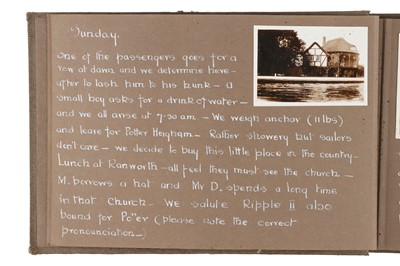 Sunday.
One of the passengers goes for a
row at dawn and we determine here-
after to lash him to his bunk - A
small boy asks for a drink of water -
and we all arise at 7-30 am - We weigh anchor (11 lbs)
and leave for Potter Heigham - Rather showery but sailors
don't care - we decide to buy this little place in the country -
Lunch at Ranworth - all feel they must see the church -
M. borrows a hat and Mr D. spends a long time
in that Church - We salute Ripple II also
bound for Po"er (please note the correct
pronounciation -)